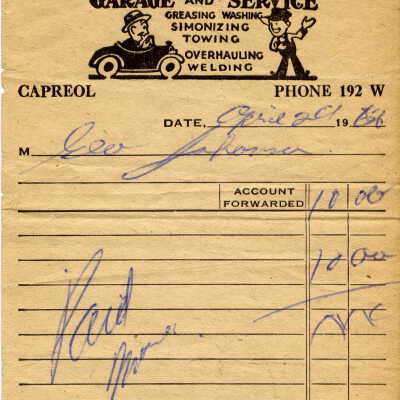 GARAGE AND SERVICE
GREASING WASHING
SIMONIZING
TOWING
OVERHAULING
WELDING
CAPREOL PHONE 192 W
DATE, April 29 19
M Geo
ACCOUNT
FORWARDED 10 00
10 00
Paid